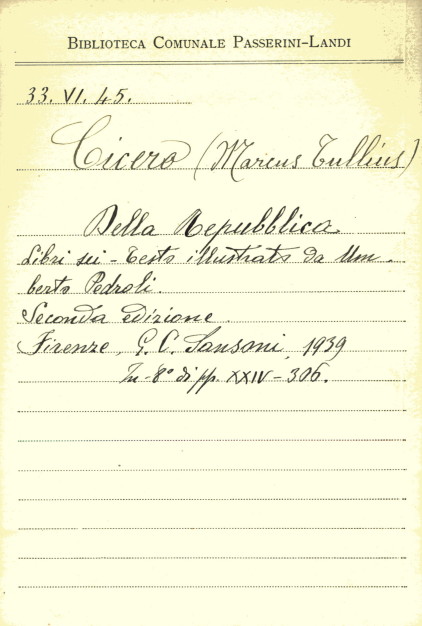 BIBLIOTECA COMUNALE PASSERINI-LANDI
33. VI. 45.
Cicero (Marcus Tullius)
Della Repubblica
Libri sei - Testo illustrato da Um-
berto Pedroli.
Seconda edizione
Firenze, G. C. Sansoni, 1939
In-8° di pp. XXIV-306.